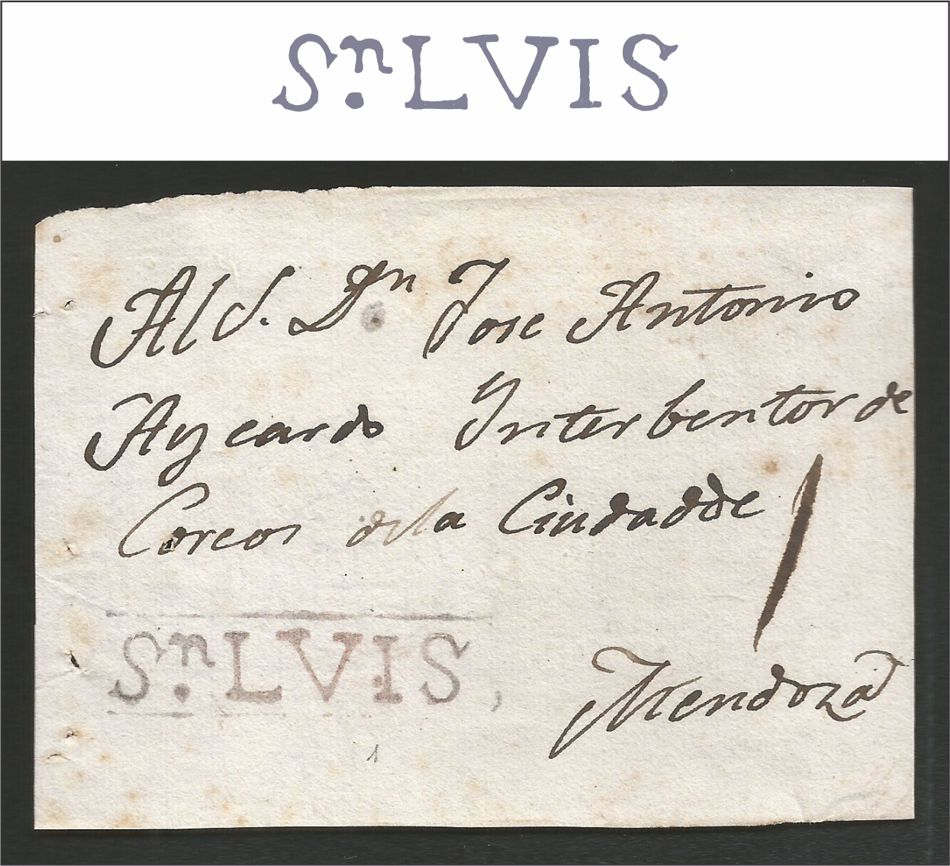 Sn. LVIS
Al S. Dn Jose Antonio
Aycardo Interbentor de
Correos dela Ciudadde
1
Sn. LVIS
Mendoza
1